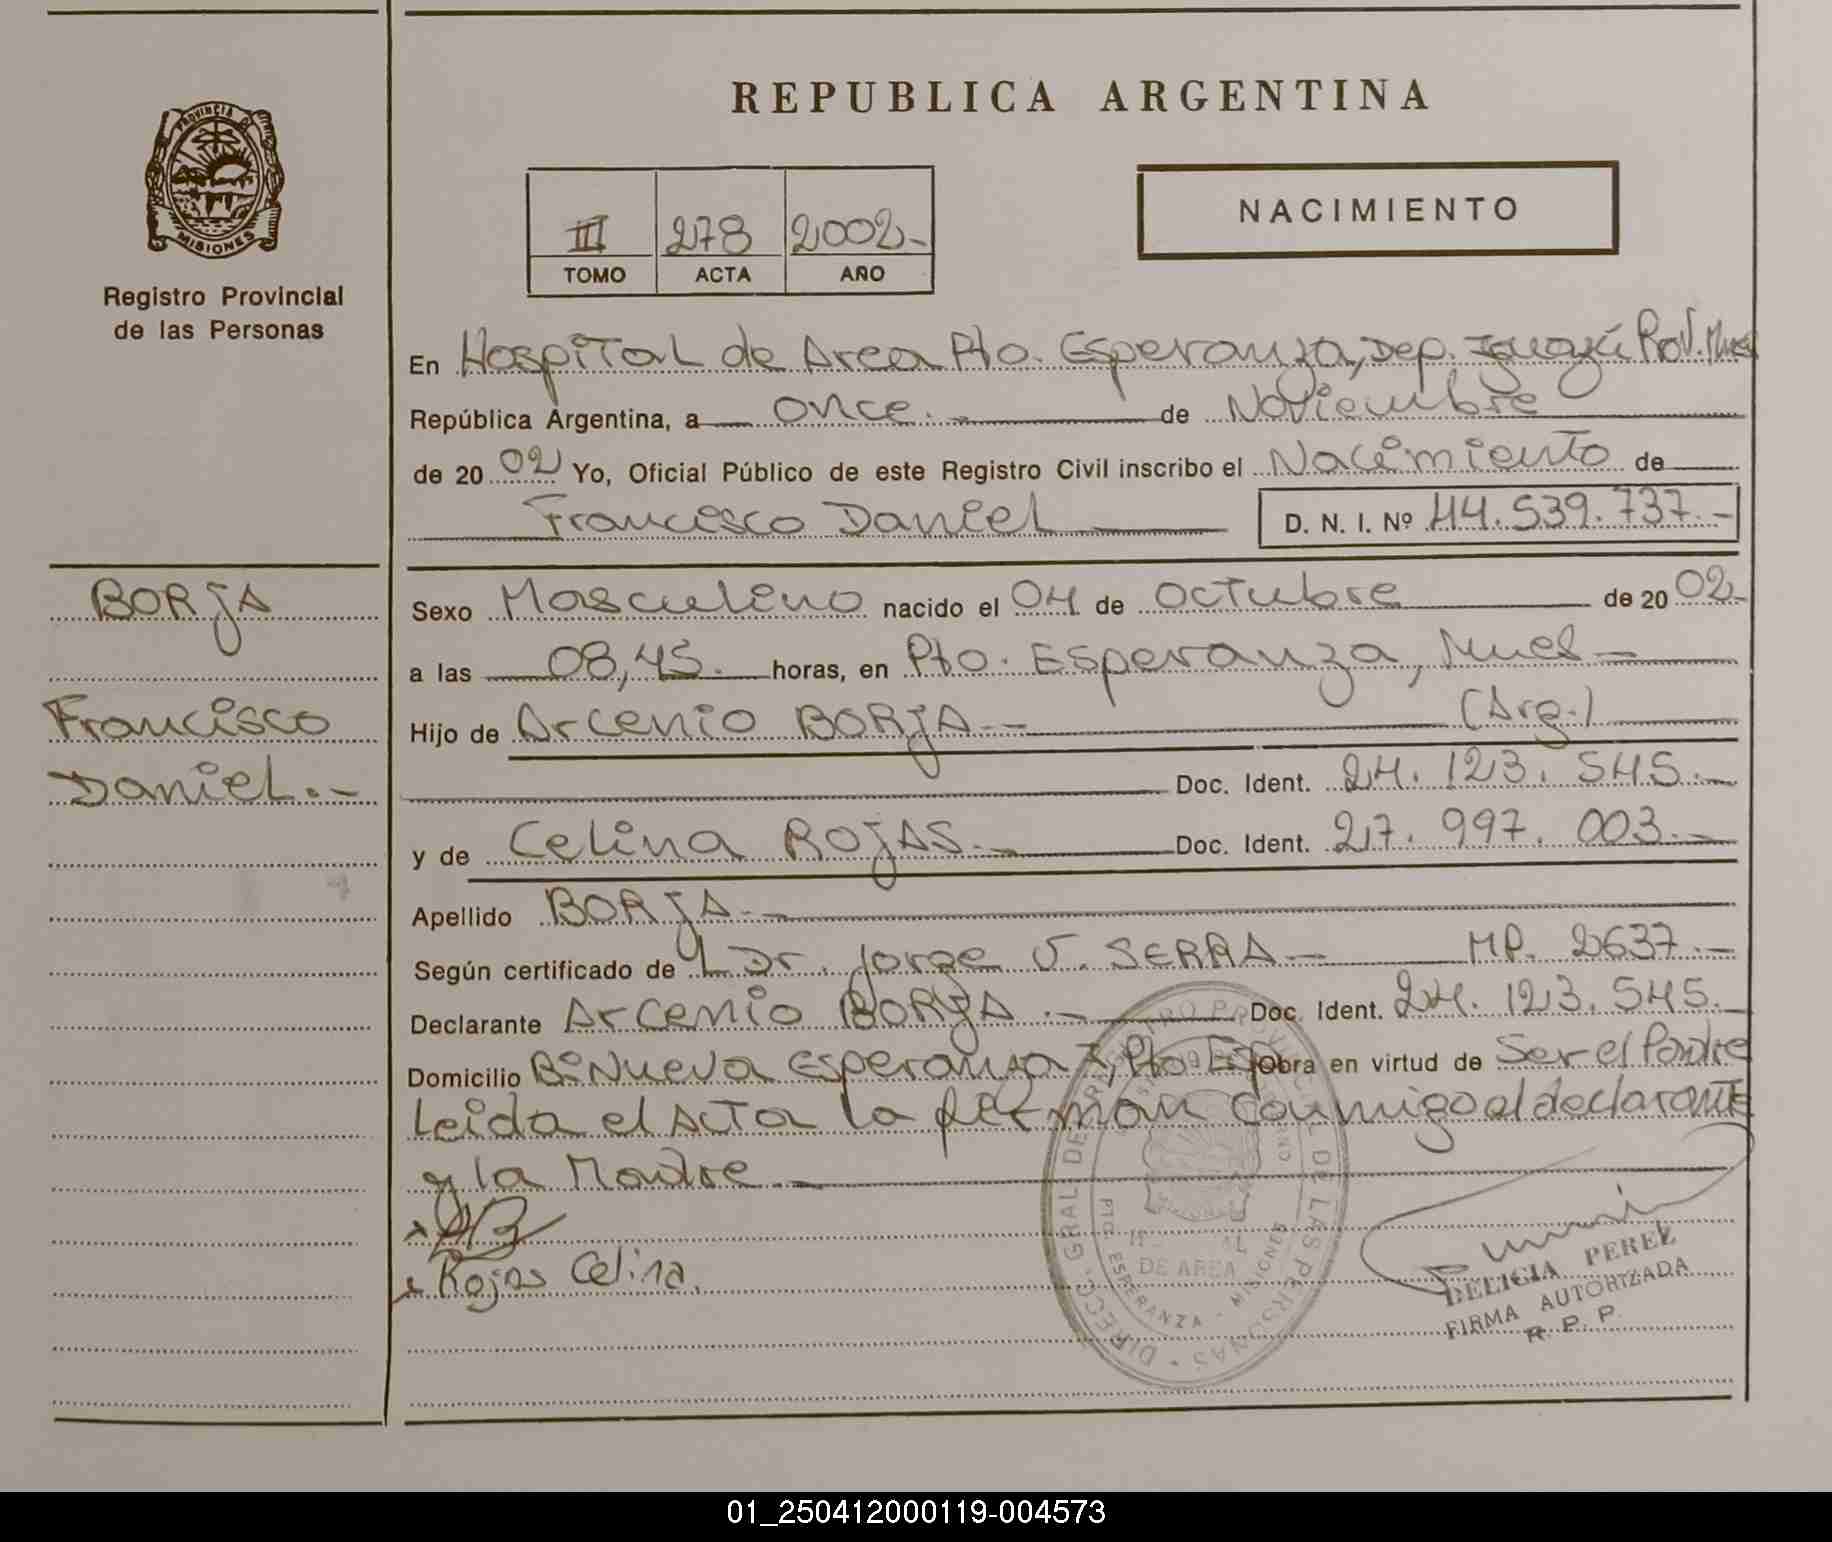 REPUBLICA ARGENTINA
PROVINCIA DE
MISIONES
Registro Provincial
de las Personas
III 278 2002-
TOMO ACTA AÑO
NACIMIENTO
En Hospital de Area Pto. Esperanza, Dep. Iguazú Prov. Mnes
República Argentina, a once.- de Noviembre
de 20 02 Yo, Oficial Público de este Registro Civil inscribo el Nacimiento de
Francisco Daniel D. N. I. Nº 44.539.737.-
BORJA
Francisco
Daniel.-
Sexo Masculino nacido el 04 de octubre de 20 02-
a las 08,45. horas, en Pto. Esperanza, Mnes-
Hijo de Arcenio BORJA.- (Arg.)
Doc. Ident. 24.123.545.-
y de Celina ROJAS.- Doc. Ident. 27.997.003.-
Apellido BORJA.-
Según certificado de L Dr. Jorge J. SERRA- MP. 2637.-
Declarante Arcenio BORJA.- Doc. Ident. 24.123.545.-
Domicilio Bº Nueva Esperanza, Pto Esp Obra en virtud de Ser el Padre
Leida el Acta la firman conmigo el declarante
y la Madre.-
x AB
x Rojas Celina.
DIRECC. GRAL DE REGISTRO PROVINCIAL DE LAS PERSONAS
DE AREA
PTO. ESPERANZA - MISIONES
DELICIA PEREZ
FIRMA AUTORIZADA
R. P. P.
01_250412000119-004573